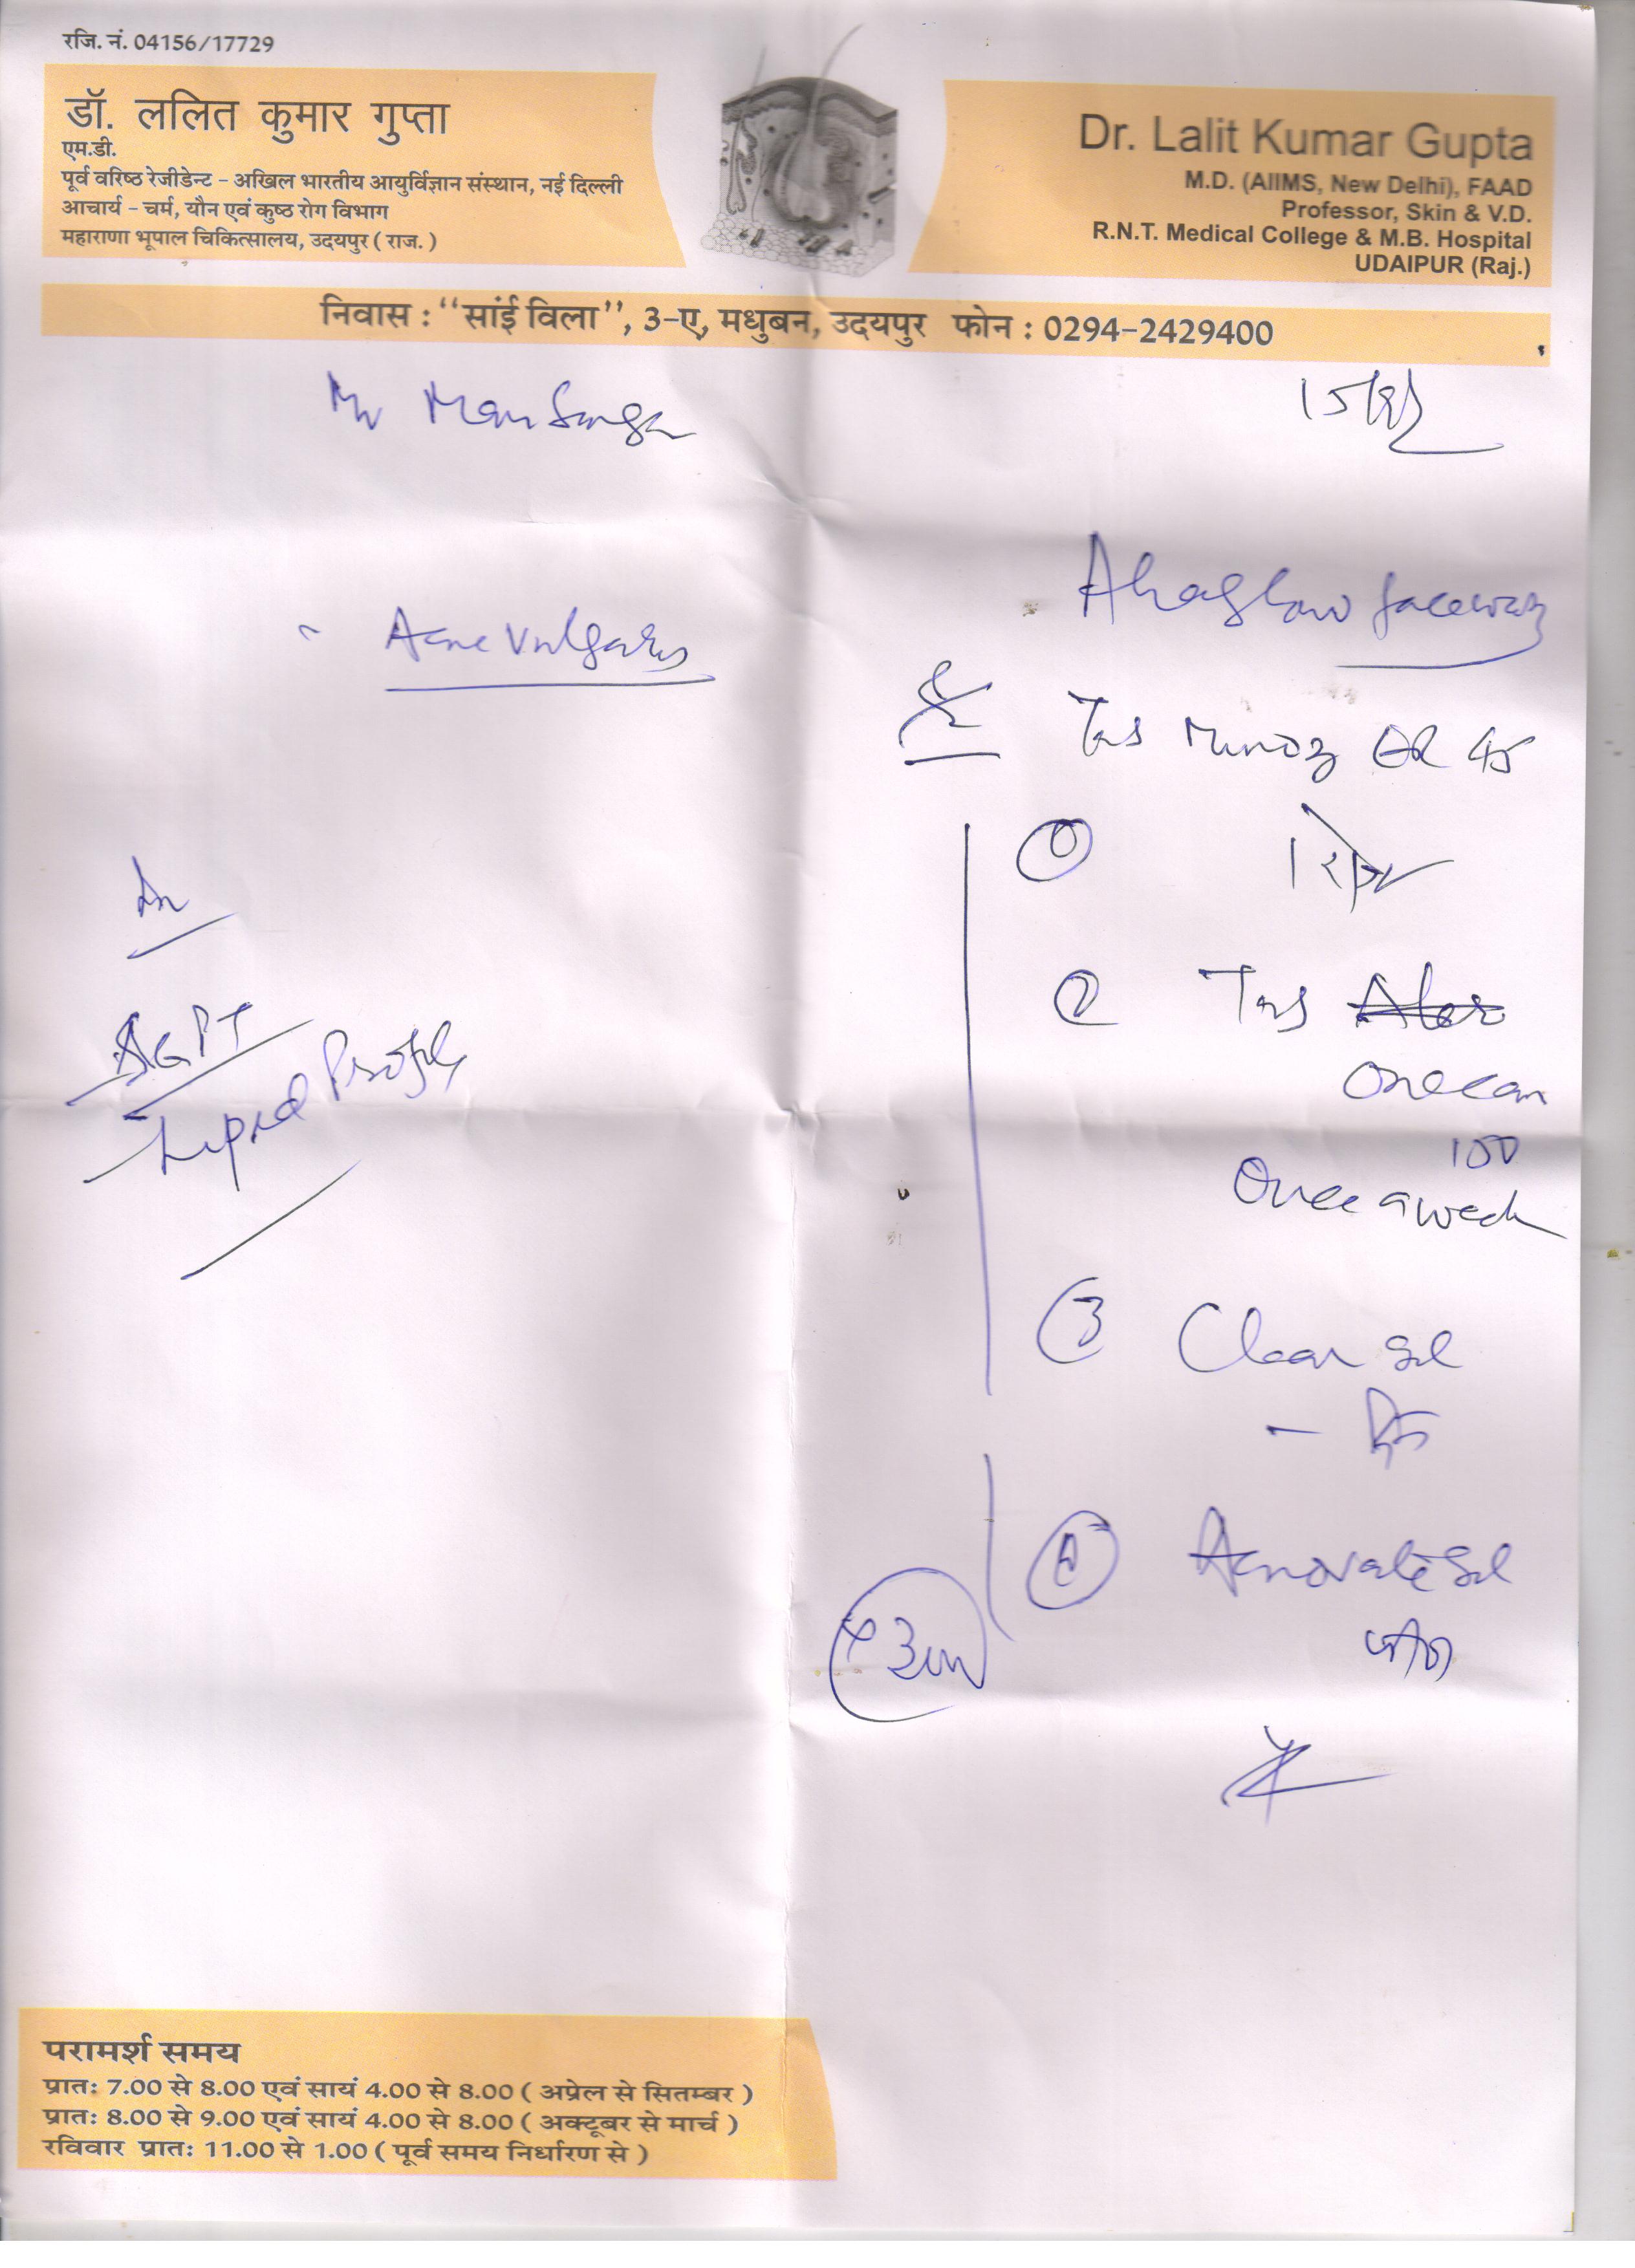 रजि. नं. 04156/17729
डॉ. ललित कुमार गुप्ता
एम.डी.
पूर्व वरिष्ठ रेजीडेन्ट - अखिल भारतीय आयुर्विज्ञान संस्थान, नई दिल्ली
आचार्य - चर्म, यौन एवं कुष्ठ रोग विभाग
महाराणा भूपाल चिकित्सालय, उदयपुर ( राज. )
Dr. Lalit Kumar Gupta
M.D. (AIIMS, New Delhi), FAAD
Professor, Skin & V.D.
R.N.T. Medical College & M.B. Hospital
UDAIPUR (Raj.)
निवास : "सांई विला", 3-ए, मधुबन, उदयपुर फोन : 0294-2429400
Mr Man Singh
Ahaglow facewash
Acne Vulgaris
Tab ER 45
①
② Tab
Onecan
150
Once a week
SGPT
Lipid Profile
③ Clear gel
④ Acnovate gel
परामर्श समय
प्रातः 7.00 से 8.00 एवं सायं 4.00 से 8.00 ( अप्रेल से सितम्बर )
प्रातः 8.00 से 9.00 एवं सायं 4.00 से 8.00 ( अक्टूबर से मार्च )
रविवार प्रातः 11.00 से 1.00 ( पूर्व समय निर्धारण से )